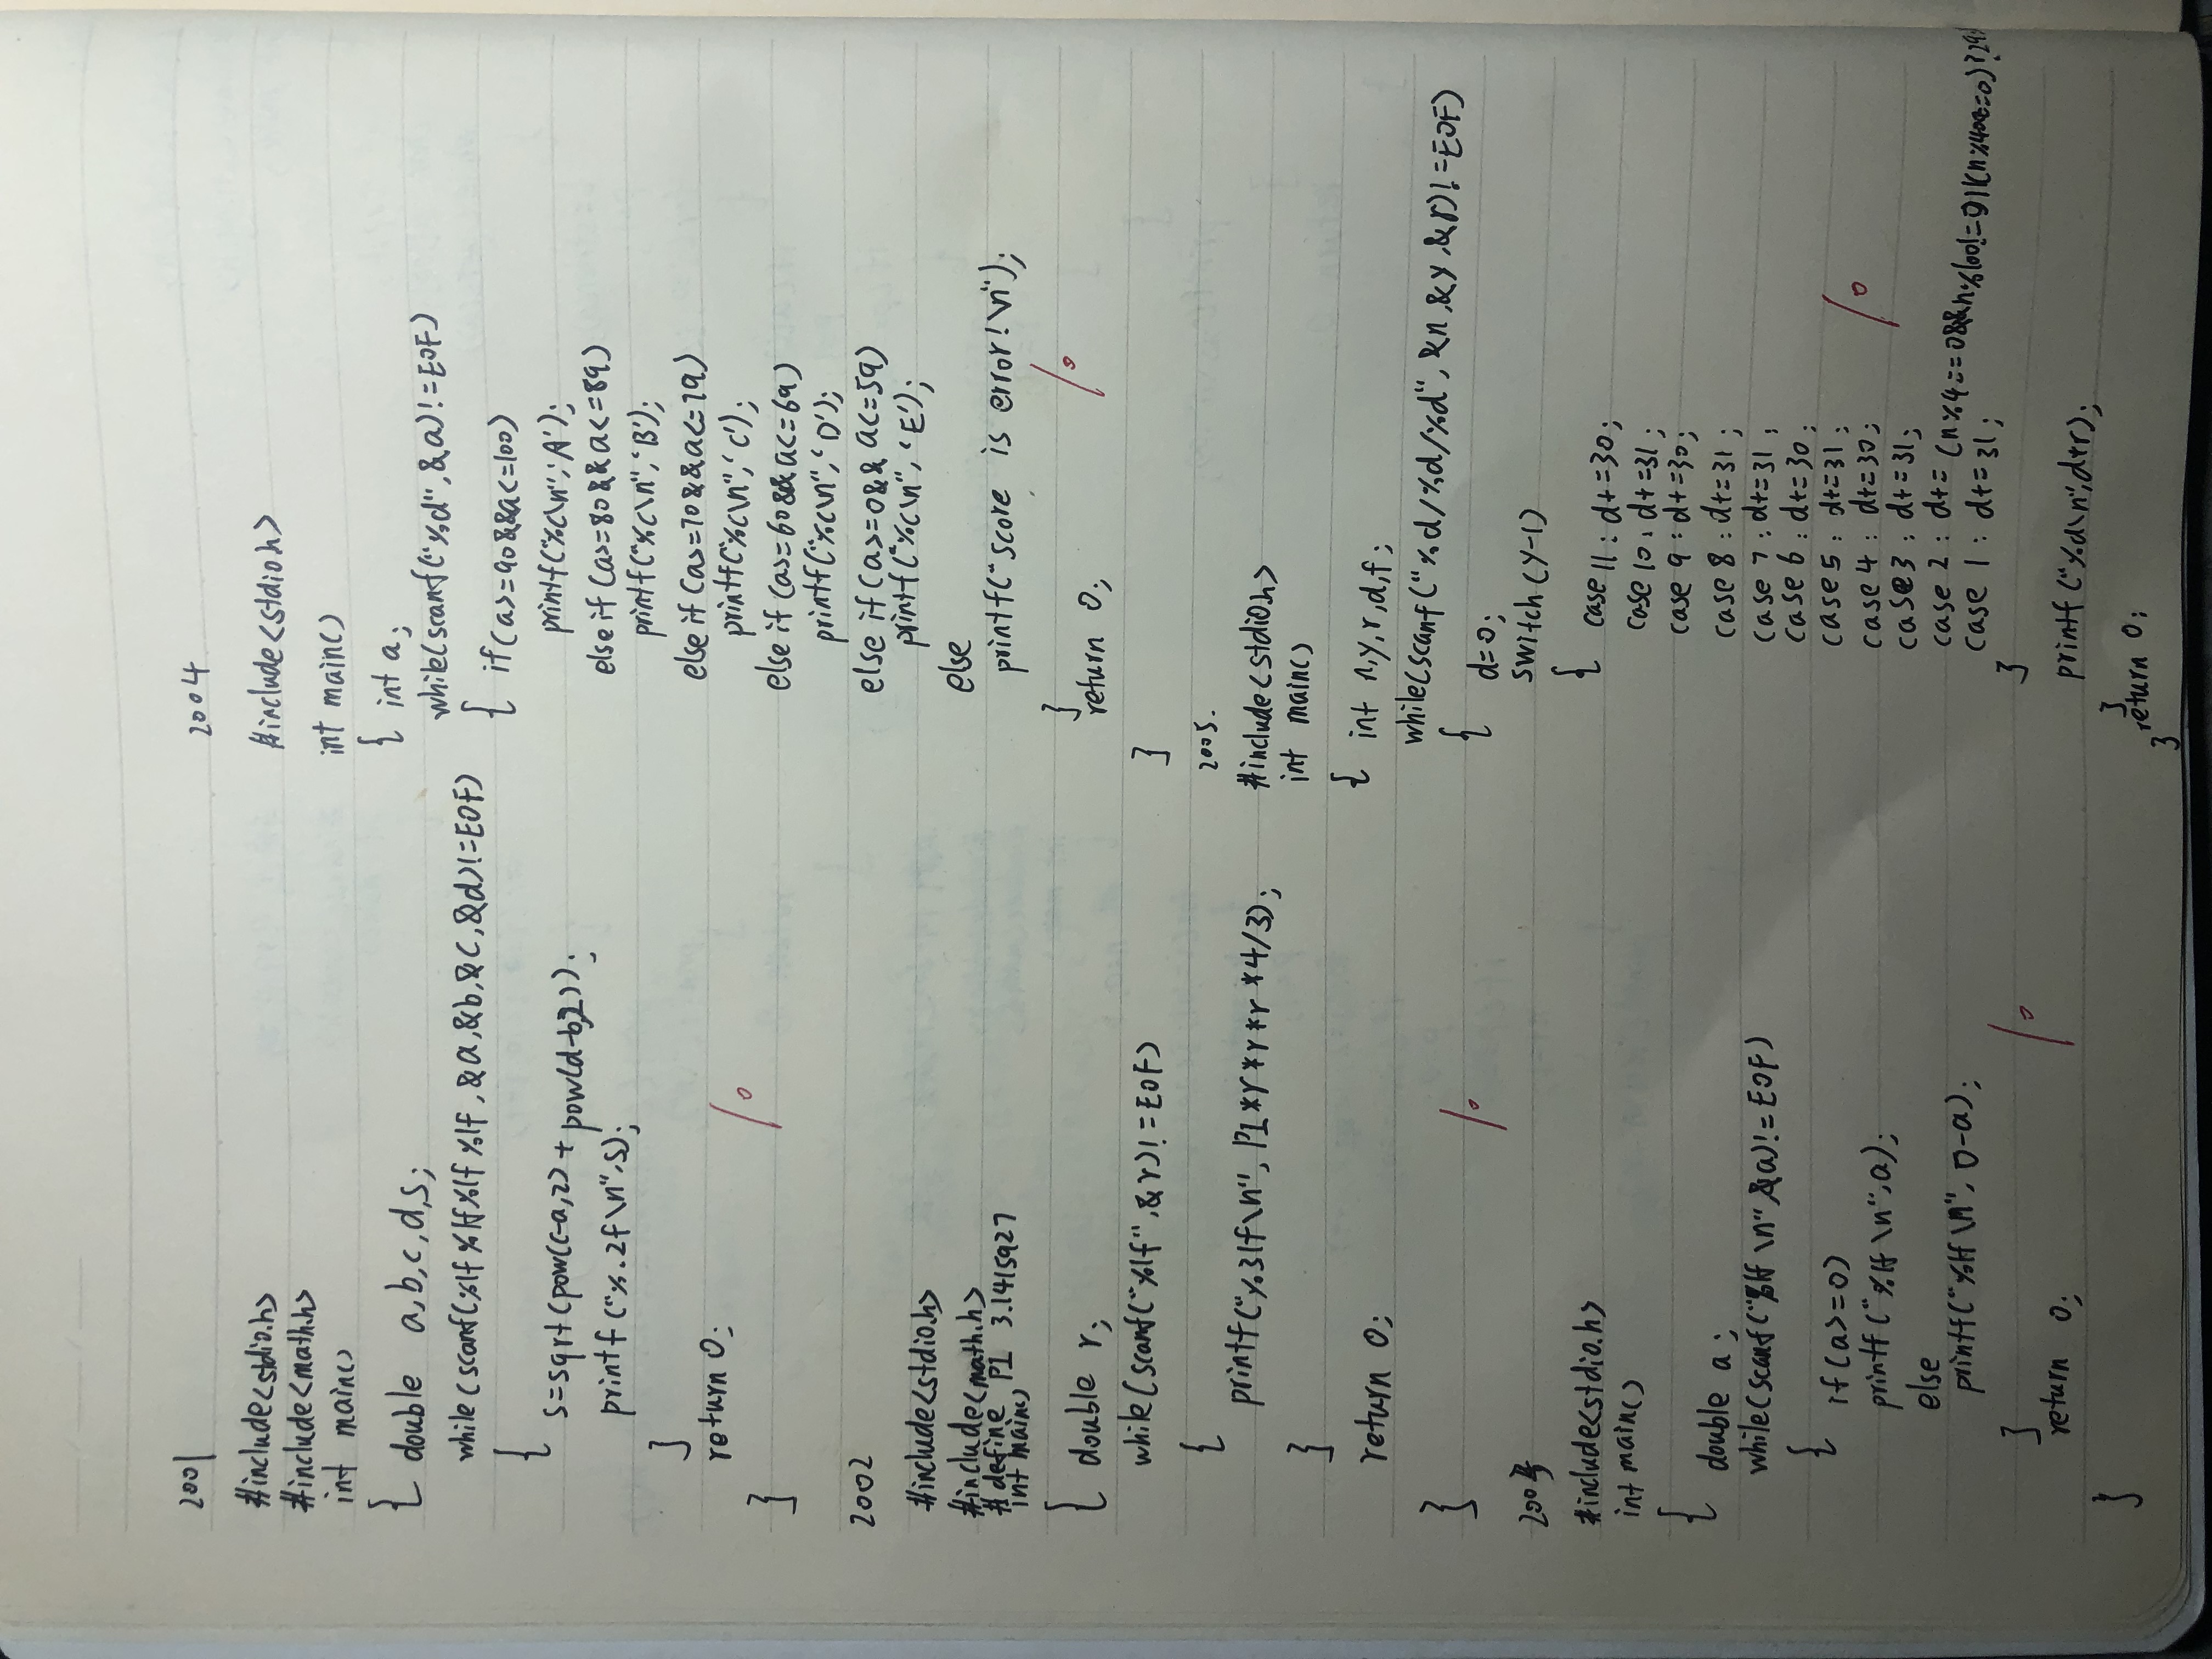 2001
#include<stdio.h>
#include<math.h>
int main()
{ double a,b,c,d,s;
while(scanf(%lf%lf%lf%lf,&a,&b,&c,&d)!=EOF)
{
s=sqrt(pow(c-a,2)+pow(d-b,2));
printf("%.2f\n",s);
}
return 0;
}
2002
#include<stdio.h>
#include<math.h>
#define PI 3.1415927
int main()
{ double r;
while(scanf("%lf",&r)!=EOF)
{
printf("%.3lf\n",PI*r*r*r*4/3);
}
return 0;
}
2003
#include<stdio.h>
int main()
{ double a;
while(scanf("%lf\n",&a)!=EOF)
{ if(a>=0)
printf("%lf\n",a);
else
printf("%lf\n",0-a);
}
return 0;
}
2004
#include<stdio.h>
int main()
{ int a;
while(scanf("%d",&a)!=EOF)
{ if(a>=90&&a<=100)
printf("%c\n",'A');
else if(a>=80&&a<=89)
printf("%c\n",'B');
else if(a>=70&&a<=79)
printf("%c\n",'C');
else if(a>=60&&a<=69)
printf("%c\n",'D');
else if(a>=0&&a<=59)
printf("%c\n",'E');
else
printf("score is error!\n");
}
return 0;
}
2005.
#include<stdio.h>
int main()
{ int n,y,r,d,f;
while(scanf("%d/%d/%d",&n,&y,&r)!=EOF)
{ d=0;
switch(y-1)
{ case 11:d+=30;
case 10:d+=31;
case 9:d+=30;
case 8:d+=31;
case 7:d+=31;
case 6:d+=30;
case 5:d+=31;
case 4:d+=30;
case 3:d+=31;
case 2:d+=(n%4==0&&n%100!=0||n%400==0)?29
case 1:d+=31;
}
printf("%d\n",d+r);
}
return 0;
}